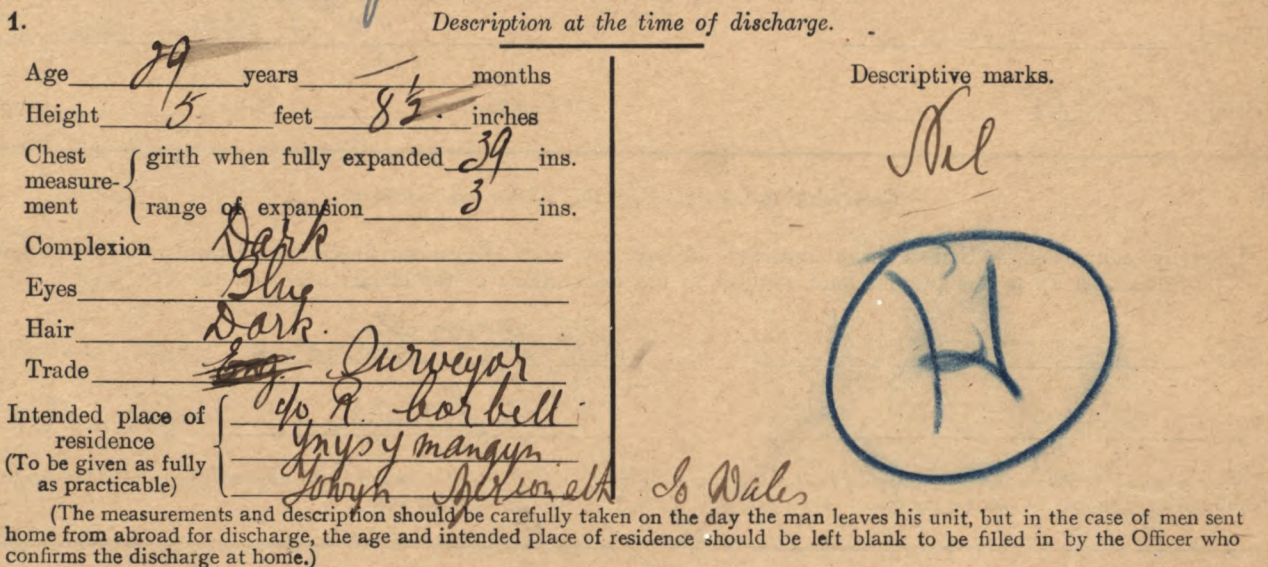 1. Description at the time of discharge.
Age 29 years — months
Height 5 feet 8½ inches
Chest measure-ment
girth when fully expanded 39 ins.
range of expansion 3 ins.
Complexion Dark
Eyes Blue
Hair Dark.
Trade Eng. Surveyor
Intended place of residence
(To be given as fully as practicable)
c/o R. Corbett
Ynysymangyn
Towyn Merioneth Wales
Descriptive marks.
Nil
H
(The measurements and description should be carefully taken on the day the man leaves his unit, but in the case of men sent
home from abroad for discharge, the age and intended place of residence should be left blank to be filled in by the Officer who
confirms the discharge at home.)